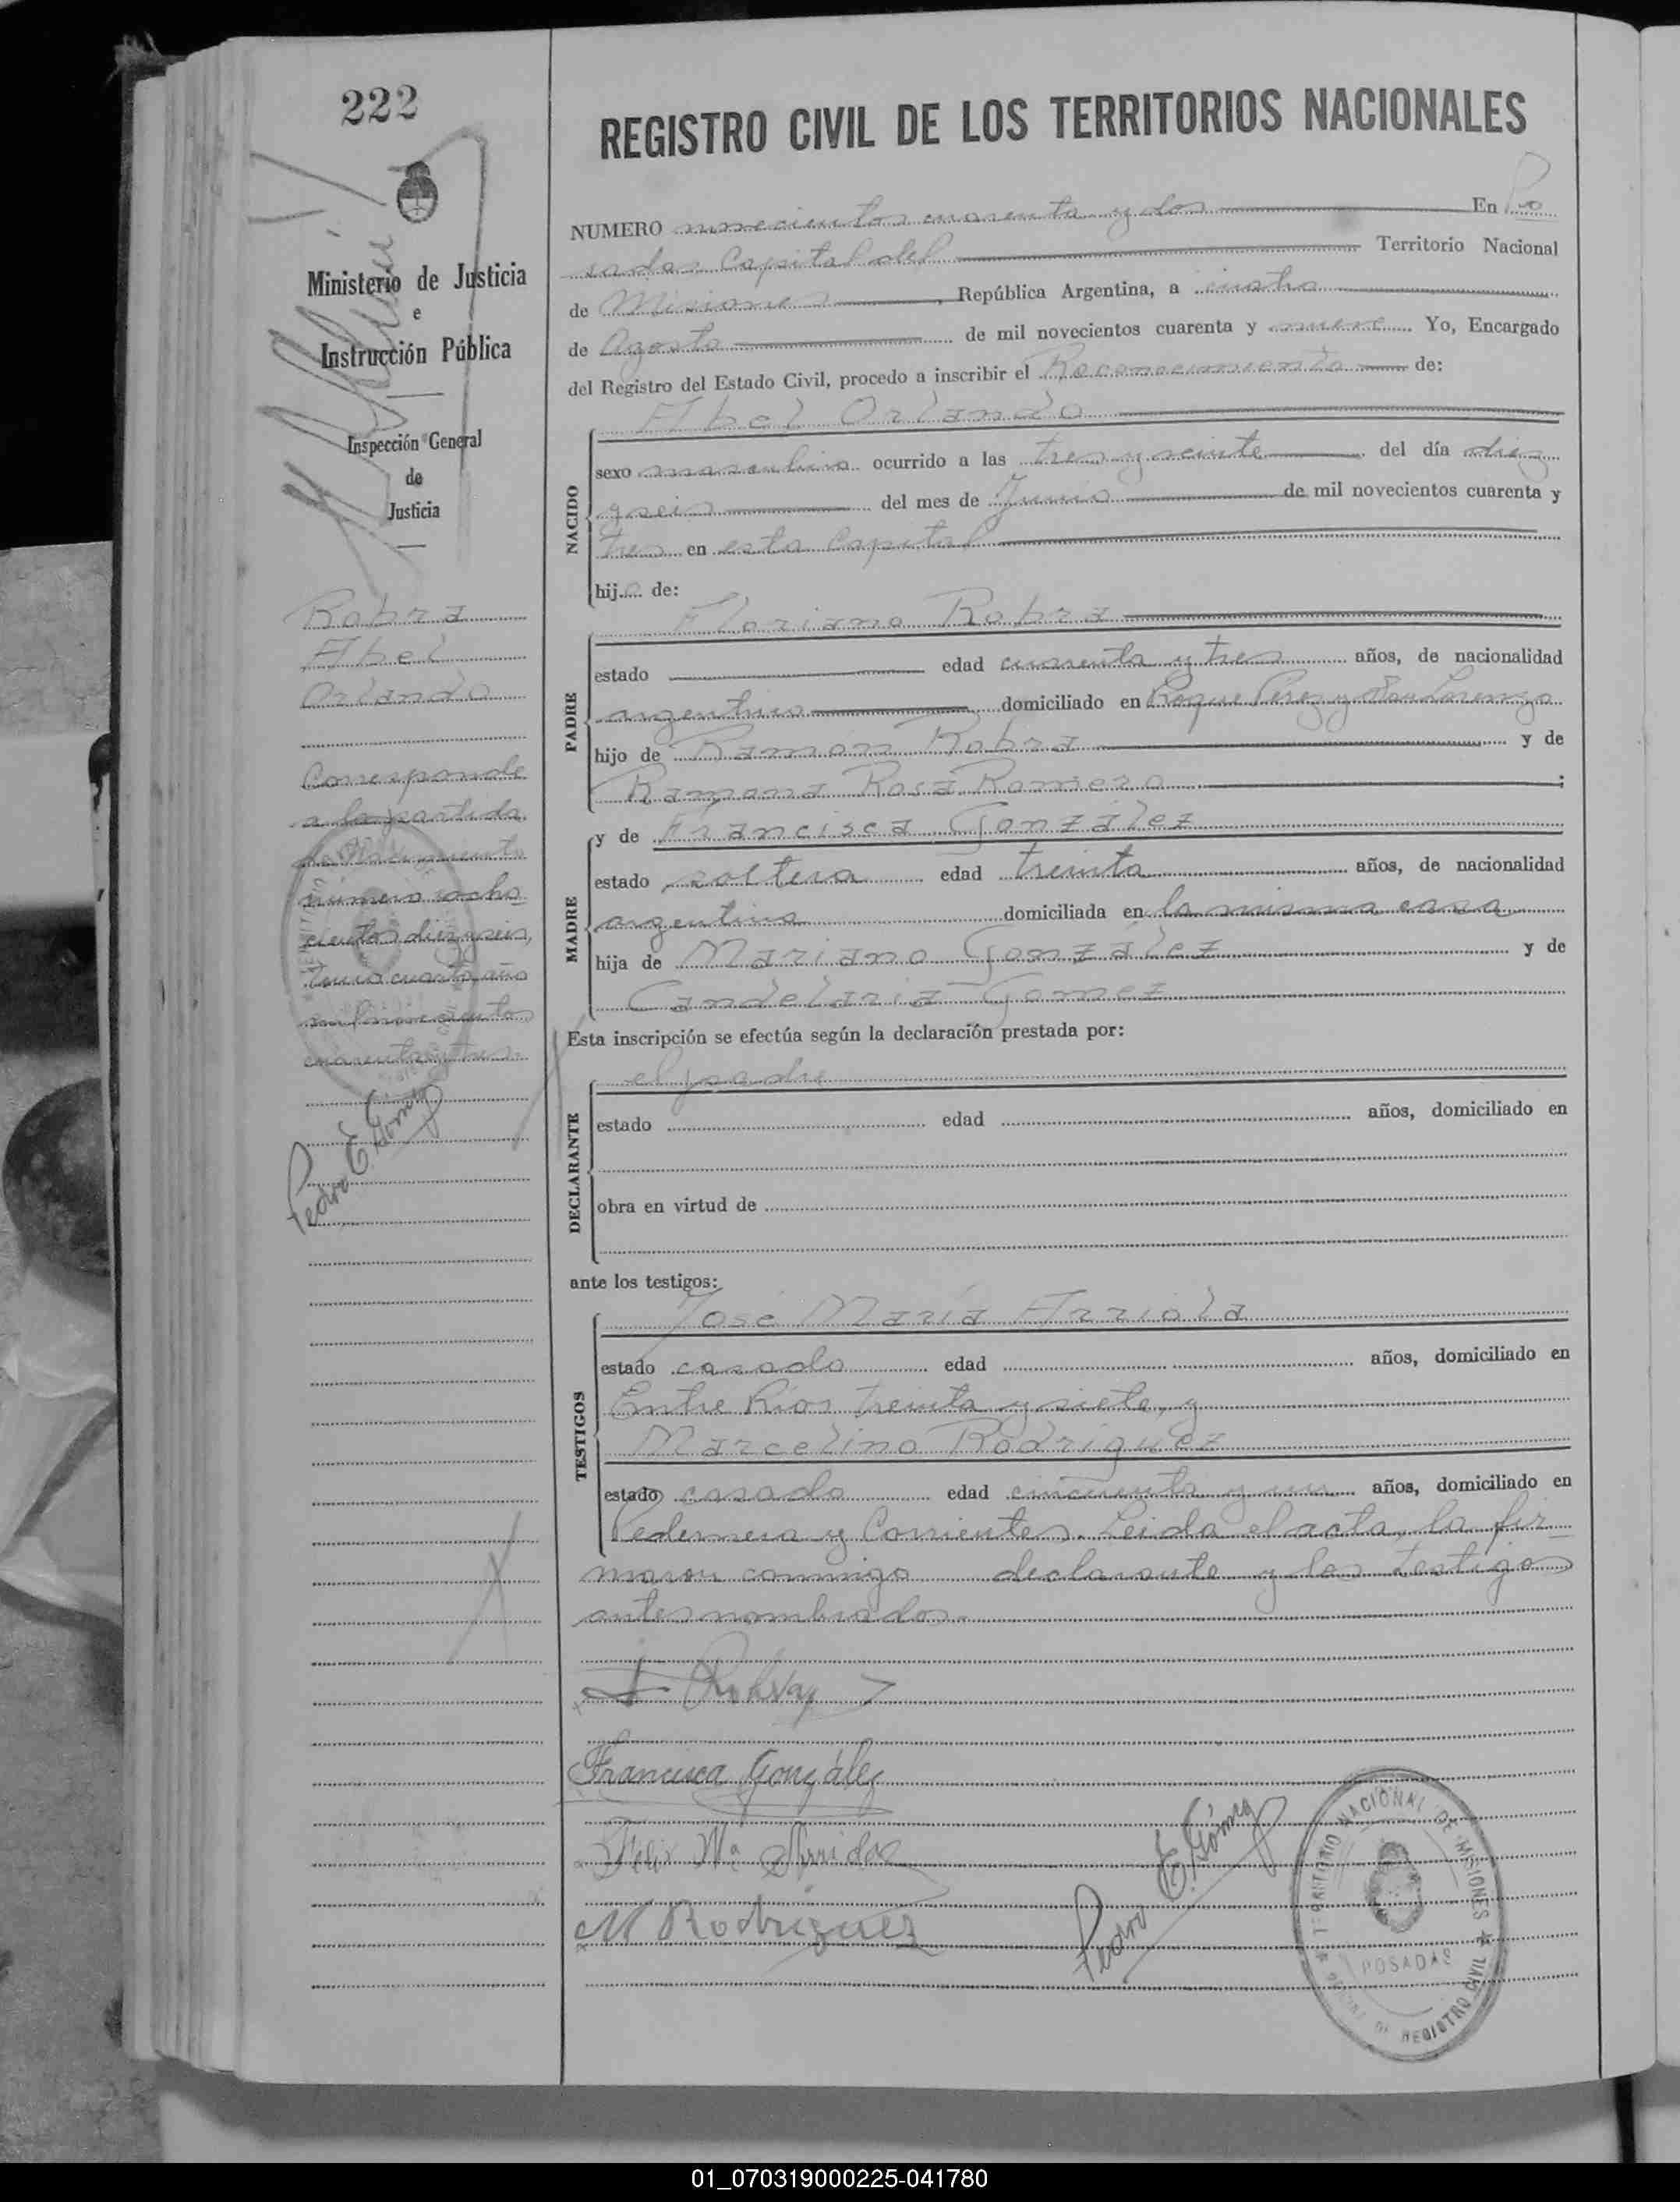 222
Ministerio de Justicia
e
Instrucción Pública
Inspección General
de
Justicia
Robra
Abel
Orlando
Corresponde
a la partida
de Nacimiento
número ocho
cientos diez y seis,
tomo cuarto, año
mil novecientos
cuarenta y tres.
Pedro E. Gómez
REGISTRO CIVIL DE LOS TERRITORIOS NACIONALES
NUMERO novecientos cuarenta y dos En Po
sadas Capital del Territorio Nacional
de Misiones, República Argentina, a cuatro
de Agosto de mil novecientos cuarenta y nueve Yo, Encargado
del Registro del Estado Civil, procedo a inscribir el Reconocimiento de:
Abel Orlando
NACIDO
sexo masculino ocurrido a las tres y veinte del día diez
y seis del mes de Junio de mil novecientos cuarenta y
tres en esta Capital
hijo de:
Floriano Robra
PADRE
estado edad cuarenta y tres años, de nacionalidad
argentino domiciliado en Roque Perez y San Lorenzo
hijo de Ramón Robra y de
Ramona Rosa Romero ;
y de Francisca González
MADRE
estado soltera edad treinta años, de nacionalidad
argentina domiciliada en la misma casa
hija de Mariano González y de
Candelaria Gomez
Esta inscripción se efectúa según la declaración prestada por:
el padre
DECLARANTE
estado edad años, domiciliado en
obra en virtud de
ante los testigos:
José María Arriola
TESTIGOS
estado casado edad años, domiciliado en
Entre Ríos treinta y siete, y
Marcelino Rodriguez
estado casado edad cincuenta y un años, domiciliado en
Pedernera y Corrientes. Leida el acta, la fir-
maron conmigo declarante y los testigos
antes nombrados.
Francisca González
M Rodriguez
Pedro E. Gómez
TERRITORIO NACIONAL DE MISIONES
POSADAS
REGISTRO CIVIL
01_070319000225-041780